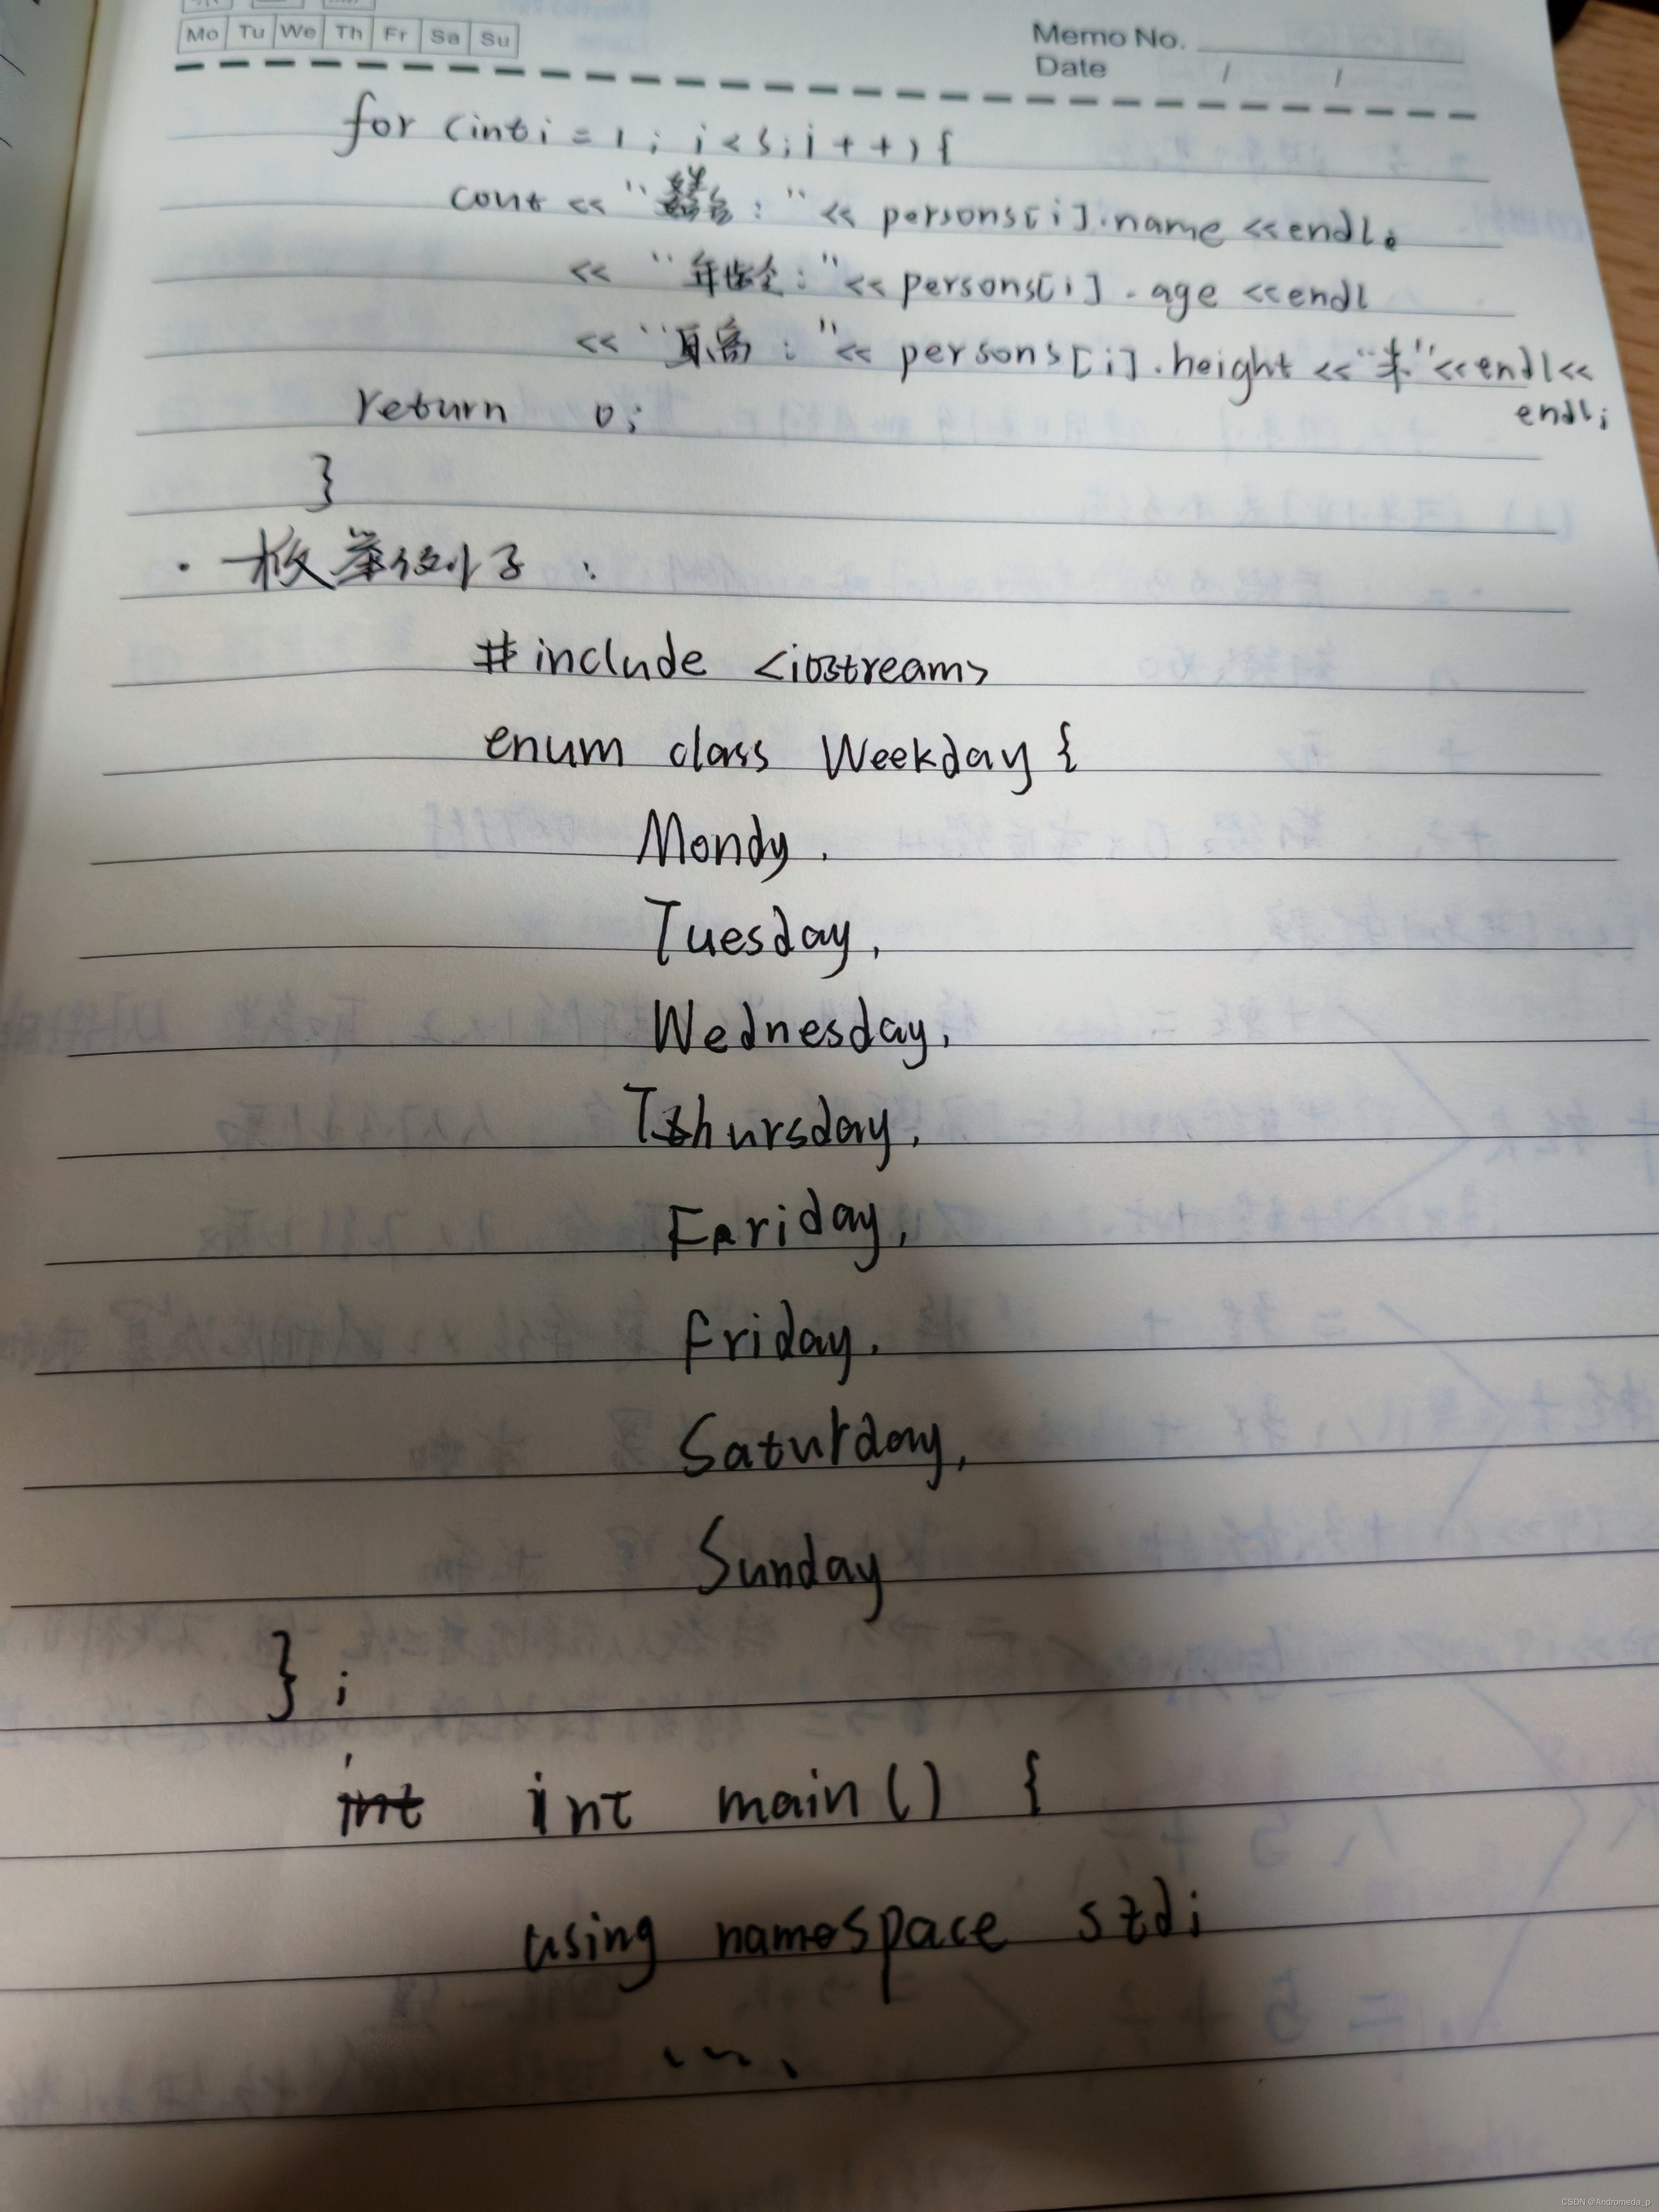 Mo Tu We Th Fr Sa Su
Memo No.
Date / /
for (int i = 1; i < 5; i++) {
cout << "姓名: " << persons[i].name << endl
<< "年龄: " << persons[i].age << endl
<< "身高: " << persons[i].height << "米" << endl <<
endl;
return 0;
}
· 枚举例子:
#include <iostream>
enum class Weekday {
Mondy.
Tuesday,
Wednesday,
Thursday,
Friday,
Friday.
Saturday,
Sunday
};
int int main() {
using namespace std;
....
CSDN @Andromeda_p